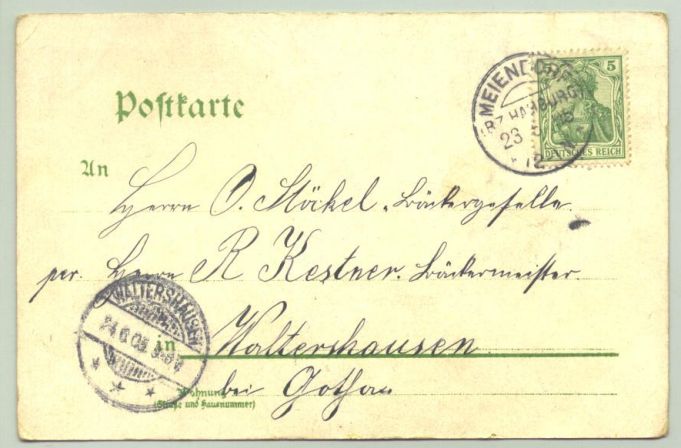 Postkarte
MEIENDORF
(BZ. HAMBURG)
23
12
5
DEUTSCHES REICH
An
Herrn O. Stöckel. Bäckergeselle.
per. Herrn R Kestner. Bäckermeister.
WALTERSHAUSEN
24.6.05
in Waltershausen
bei Gotha
Wohnung
(Straße und Hausnummer)